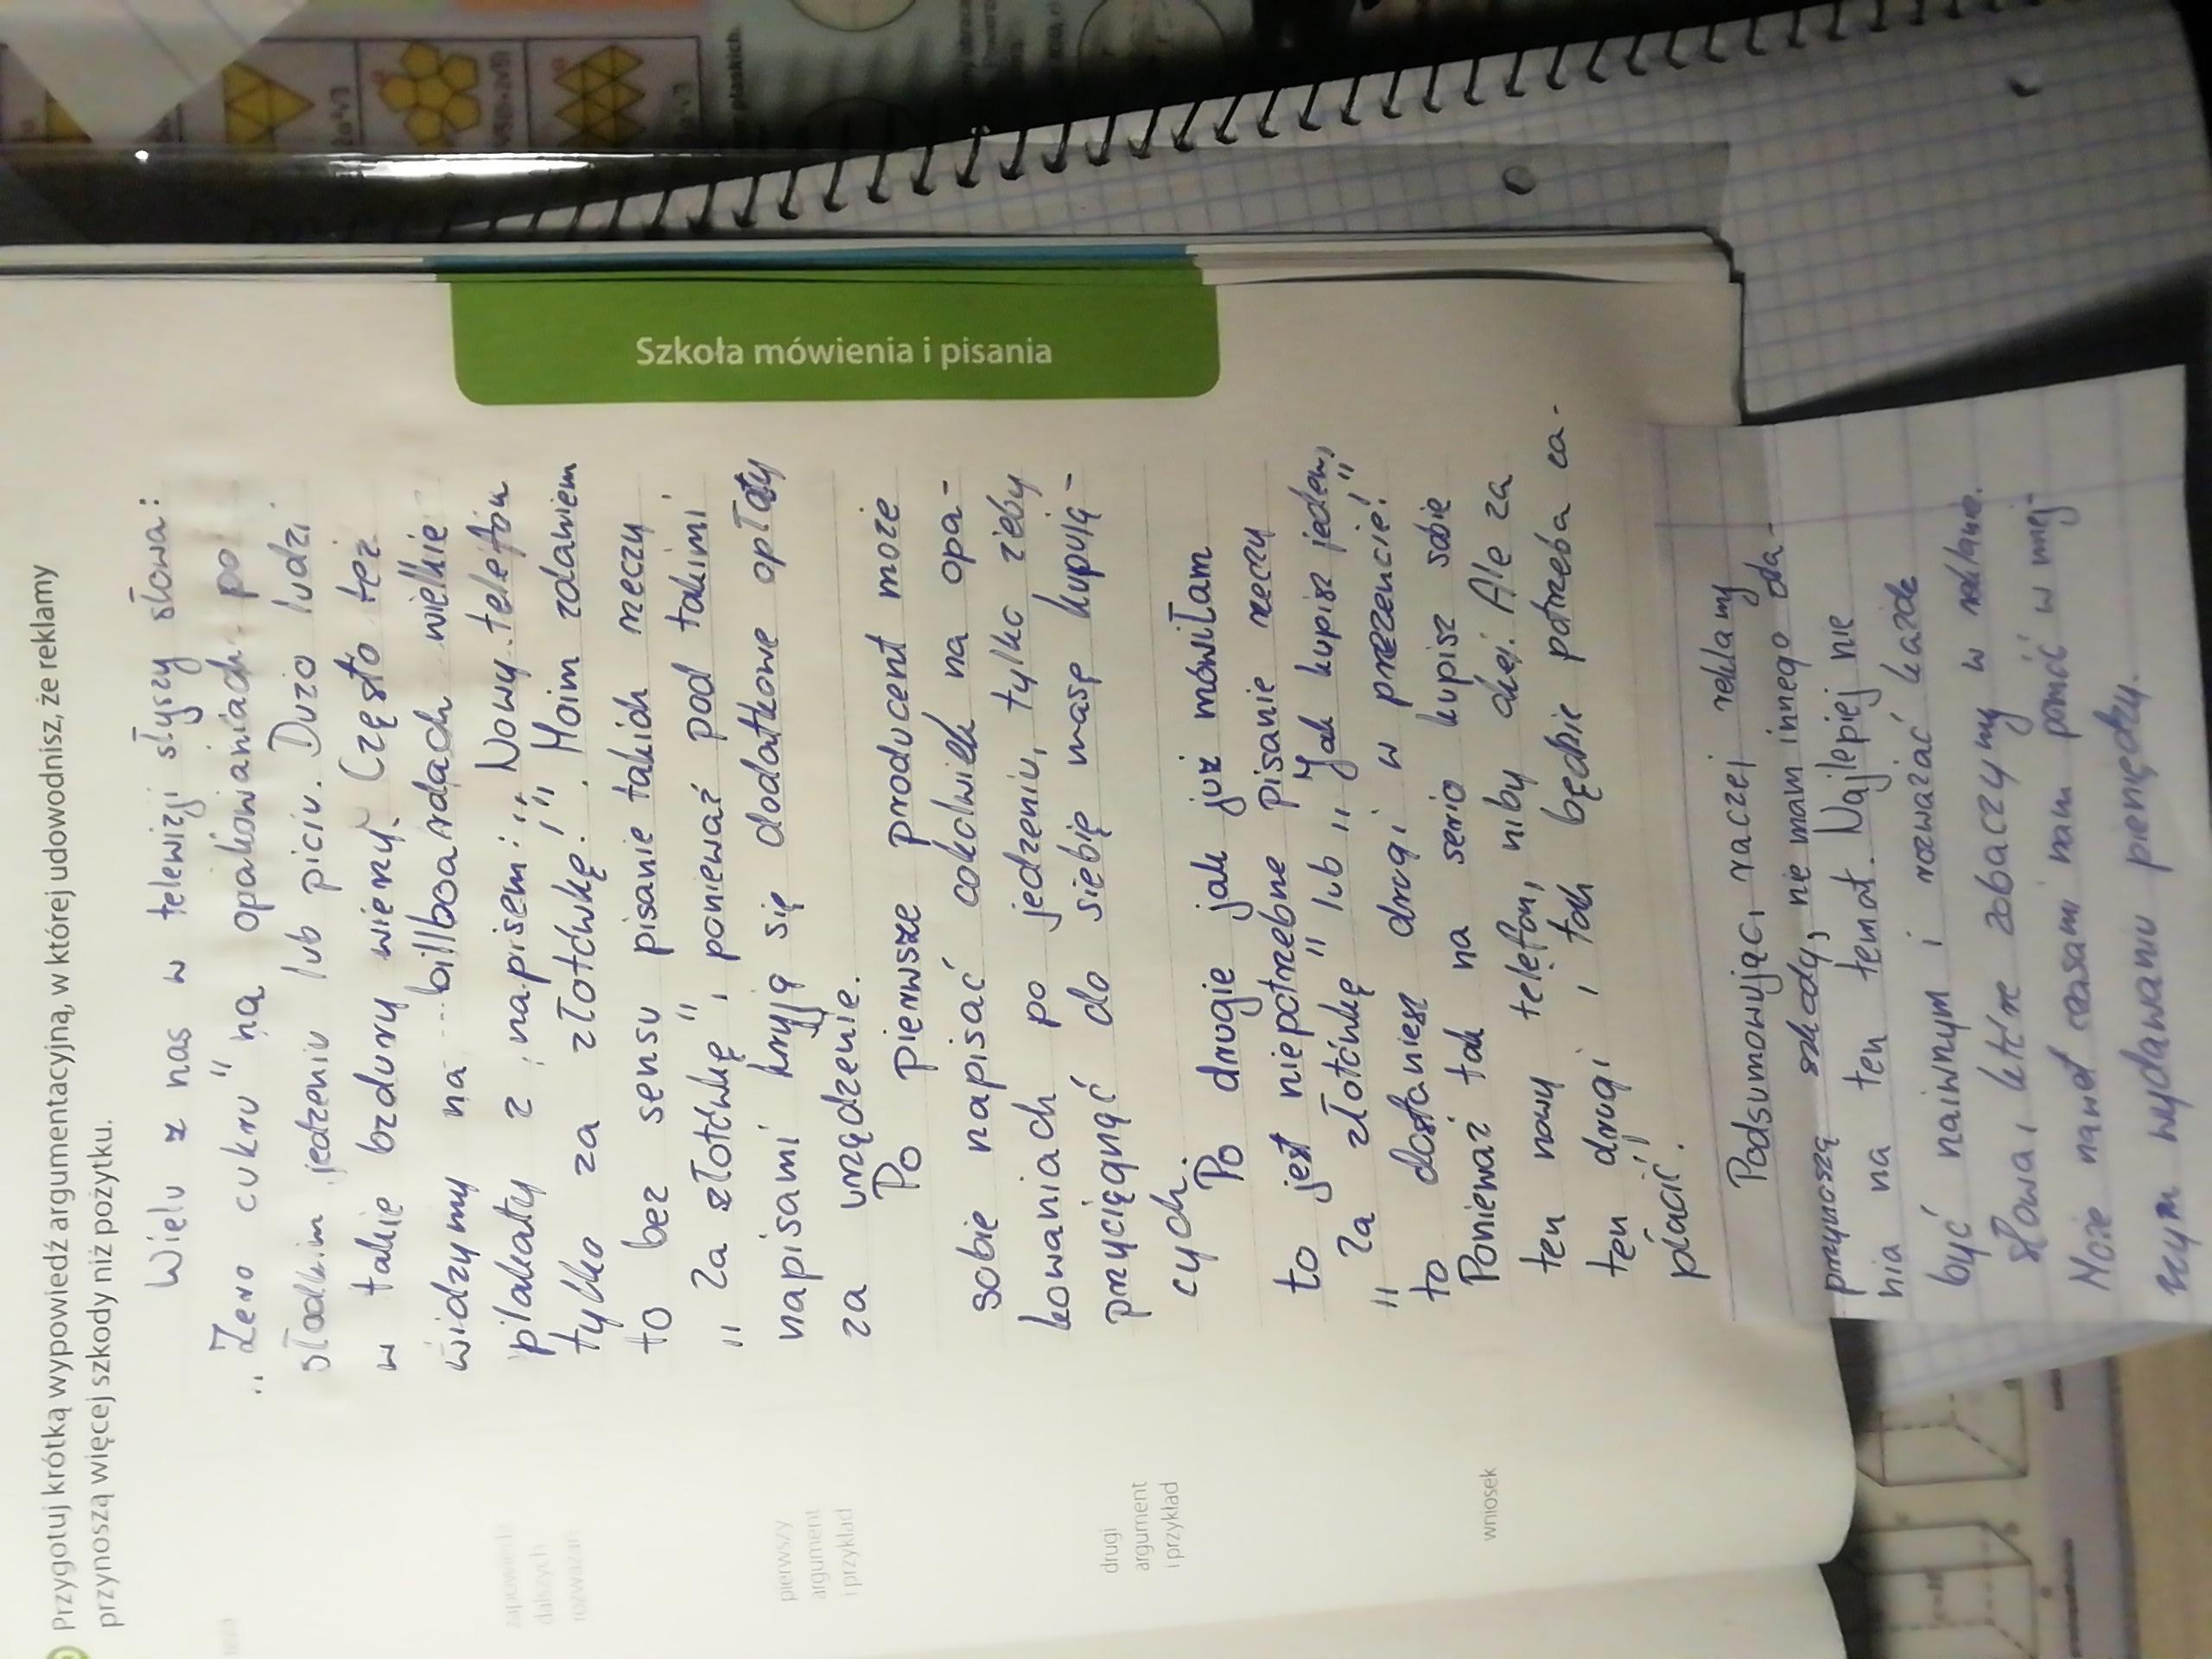 Przygotuj krótką wypowiedź argumentacyjną, w której udowodnisz, że reklamy
przynoszą więcej szkody niż pożytku.
Wielu z nas w telewizji słyszy słowa:
„Zero cukru" na opakowaniach po
słodkim jedzeniu lub piciu. Dużo ludzi
w takie bzdury wierzy. Często też
widzimy na billboardach wielkie
plakaty z napisem: „Nowy telefon
tylko za złotówkę!". Moim zdaniem
to bez sensu pisanie takich rzeczy
„Za złotówkę", ponieważ pod takimi
napisami kryją się dodatkowe opłaty
za urządzenie.
Po pierwsze producent może
sobie napisać cokolwiek na opa-
kowaniach po jedzeniu, tylko żeby
przyciągnąć do siebie masę kupują-
cych.
Po drugie jak już mówiłam
to jest niepotrzebne pisanie rzeczy
„Za złotówkę" lub „Jak kupisz jeden,
to dostaniesz drugi w prezencie!"
Ponieważ tak na serio kupisz sobie
ten nowy telefon, niby okej. Ale za
ten drugi i tak będzie potrzeba za-
płacić.
Podsumowując, raczej reklamy
przynoszą szkodę, nie mam innego zda-
nia na ten temat. Najlepiej nie
być naiwnym i rozważać każde
słowa, które zobaczymy w reklamie.
Może nawet czasami nam pomóc w mniej-
szym wydawaniu pieniędzy.
zapowiedź
dalszych
rozważań
pierwszy
argument
i przykład
drugi
argument
i przykład
wniosek
Szkoła mówienia i pisania